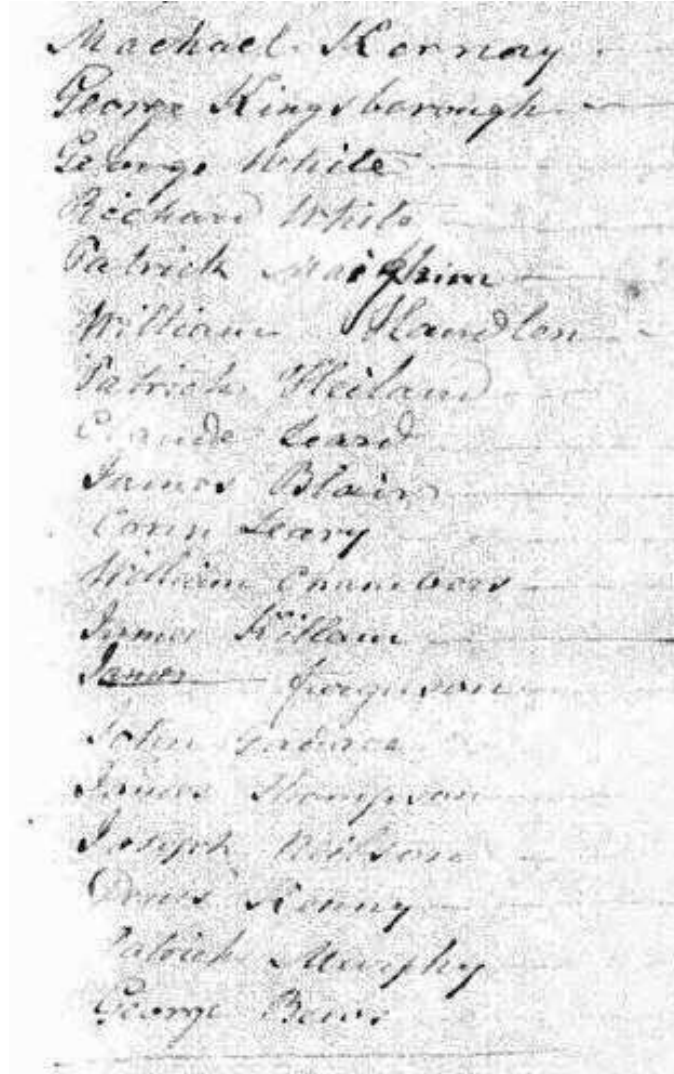 Machael Kornay
George Kingsborough
George White
Richard White
Patrick
William Handlon
Patrick Heiland
Claude Leard
James Blair
Conn Leary
William Chambers
James Killam
James Ferguson
John
James Thompson
Joseph Neilson
Denis Kenny
Patrick Murphy
George Bews